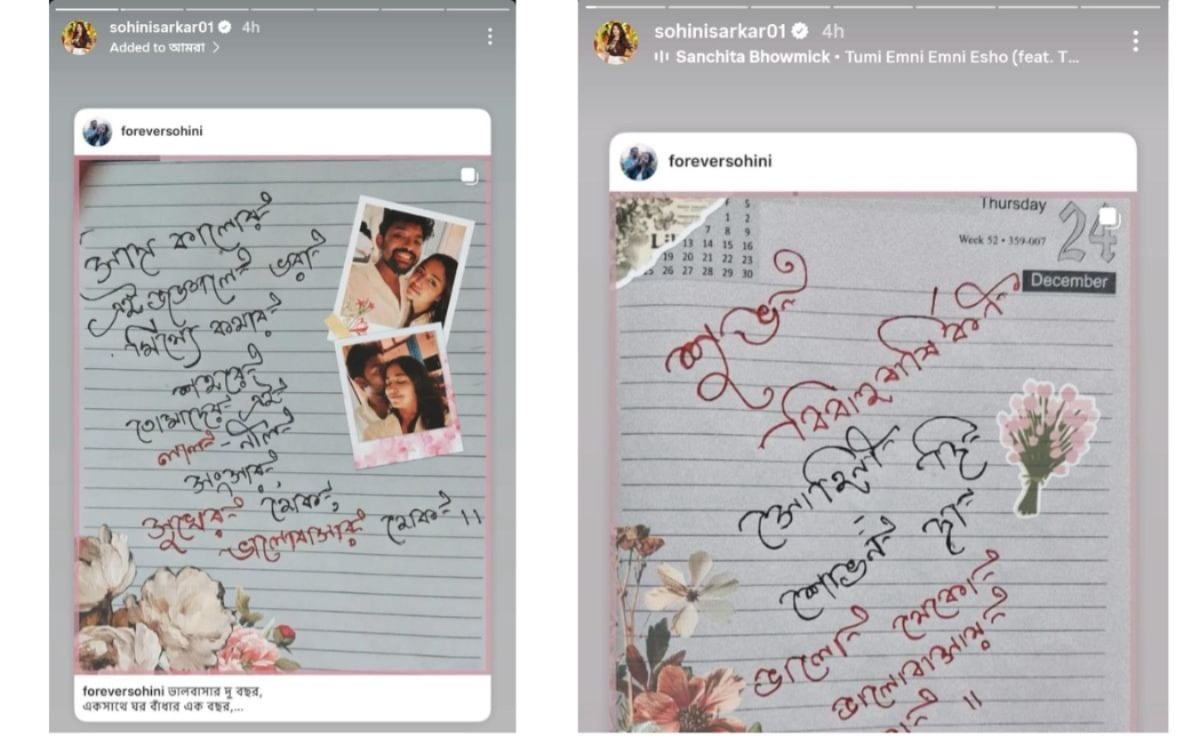 sohinisarkar01 4h
Added to আমরা >
foreversohini
সাদা কালোর
এই
ভরা
কথার
শহরে
তোমাদের এই
লাল - নীল
সংসার
সুখের হোক,
ভালোবাসার হোক ।।
foreversohini ভালবাসার দু বছর,
একসাথে ঘর বাঁধার এক বছর,...
sohinisarkar01 4h
Sanchita Bhowmick • Tumi Emni Emni Esho (feat. T...
foreversohini
F S
1 2
7 8 9
13 14 15 16
19 20 21 22 23
25 26 27 28 29 30
Thursday
24
Week 52 • 359-007
December
শুভ
বিবাহবার্ষিকী
সোহিনী দি
শোভন দা
ভালো থেকো
ভালোবাসায়